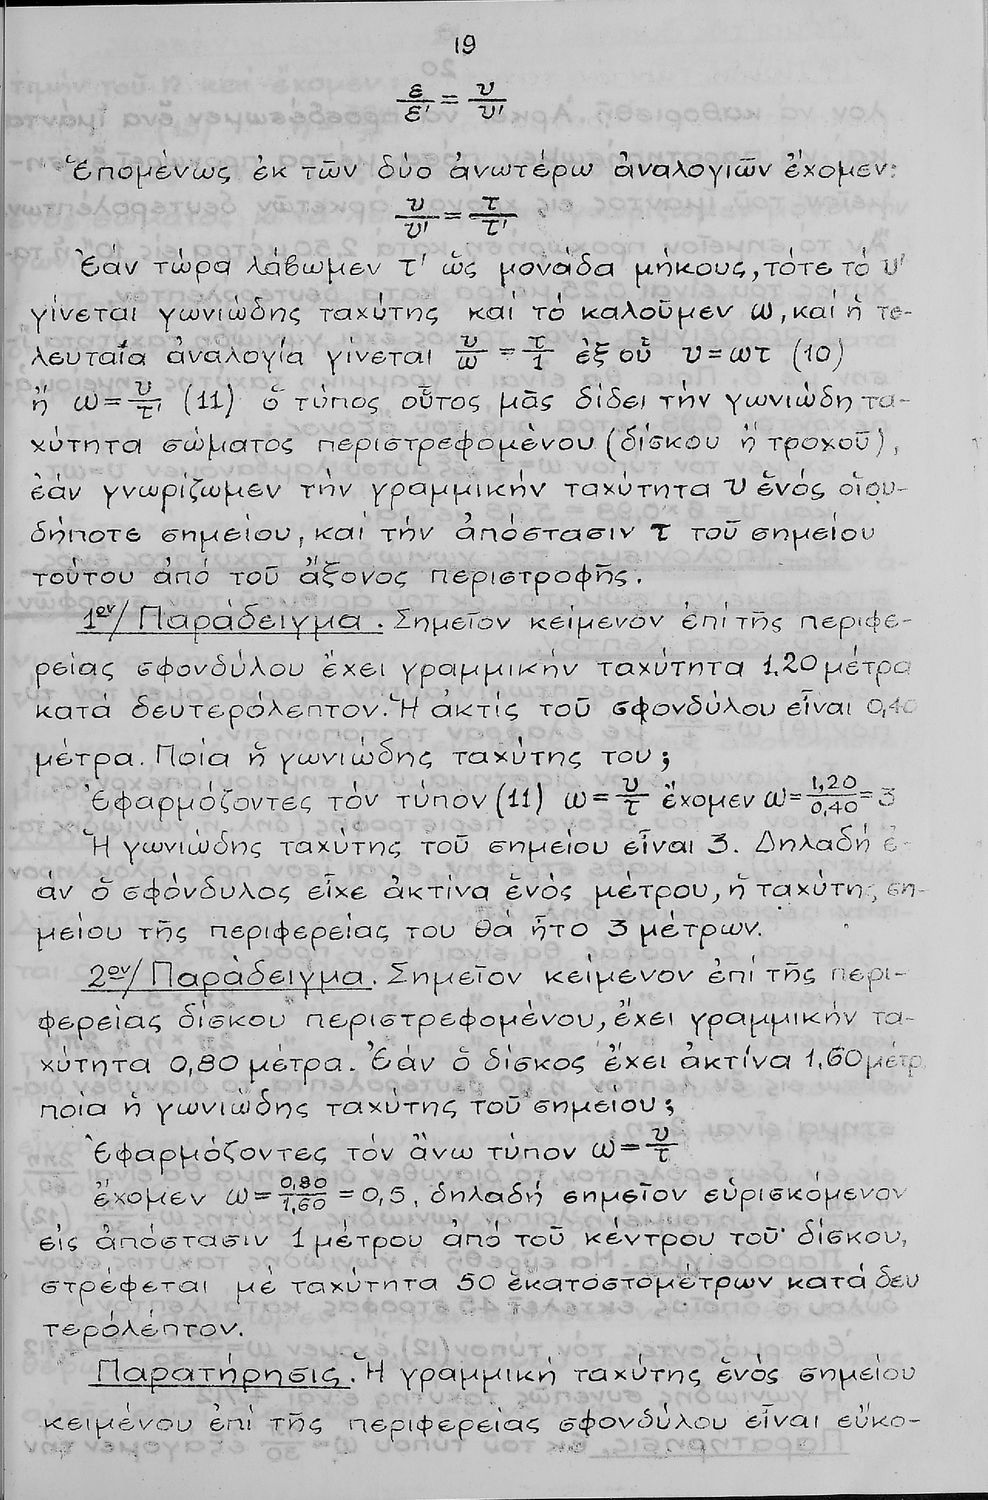 19
ε/ε' = υ/υ'
Ἑπομένως ἐκ τῶν δύο ἀνωτέρω ἀναλογιῶν ἔχομεν:
υ/υ' = τ/τ'
Ἐάν τώρα λάβωμεν τ' ὥς μονάδα μήκους, τότε τό υ'
γίνεται γωνιώδης ταχύτης καί τό καλοῦμεν ω, καί ἡ τε-
λευταία ἀναλογία γίνεται υ/ω = τ/1 ἐξ οὗ υ=ωτ (10)
ἤ ω = υ/τ' (11) ὁ τύπος οὗτος μᾶς δίδει τήν γωνιώδη τα-
χύτητα σώματος περιστρεφομένου (δίσκου ἤ τροχοῦ),
ἐάν γνωρίζωμεν τήν γραμμικήν ταχύτητα υ ἑνός οἱου-
δήποτε σημείου, καί τήν ἀπόστασιν τ τοῦ σημείου
τούτου ἀπό τοῦ ἄξονος περιστροφῆς.
1ον/ Παράδειγμα. Σημεῖον κείμενον ἐπί τῆς περιφε-
ρείας σφονδύλου ἔχει γραμμικήν ταχύτητα 1,20 μέτρα
κατά δευτερόλεπτον. Ἡ ἀκτίς τοῦ σφονδύλου εἶναι 0,40
μέτρα. Ποία ἡ γωνιώδης ταχύτης του;
Ἐφαρμόζοντες τόν τύπον (11) ω = υ/τ ἔχομεν ω = 1,20/0,40 = 3
Ἡ γωνιώδης ταχύτης τοῦ σημείου εἶναι 3. Δηλαδή ἐ-
άν ὁ σφόνδυλος εἶχε ἀκτίνα ἑνός μέτρου, ἡ ταχύτης ση-
μείου τῆς περιφερείας του θά ἦτο 3 μέτρων.
2ον/ Παράδειγμα. Σημεῖον κείμενον ἐπί τῆς περι-
φερείας δίσκου περιστρεφομένου, ἔχει γραμμικήν τα-
χύτητα 0,80 μέτρα. Ἐάν ὁ δίσκος ἔχει ἀκτίνα 1,60 μέτρ
ποία ἡ γωνιώδης ταχύτης τοῦ σημείου;
Ἐφαρμόζοντες τόν ἄνω τύπον ω = υ/τ
ἔχομεν ω = 0,80/1,60 = 0,5, δηλαδή σημεῖον εὑρισκόμενον
εἰς ἀπόστασιν 1 μέτρου ἀπό τοῦ κέντρου τοῦ δίσκου,
στρέφεται μέ ταχύτητα 50 ἑκατοστομέτρων κατά δευ
τερόλεπτον.
Παρατήρησις. Ἡ γραμμική ταχύτης ἑνός σημείου
κειμένου ἐπί τῆς περιφερείας σφονδύλου εἶναι εὔκο-